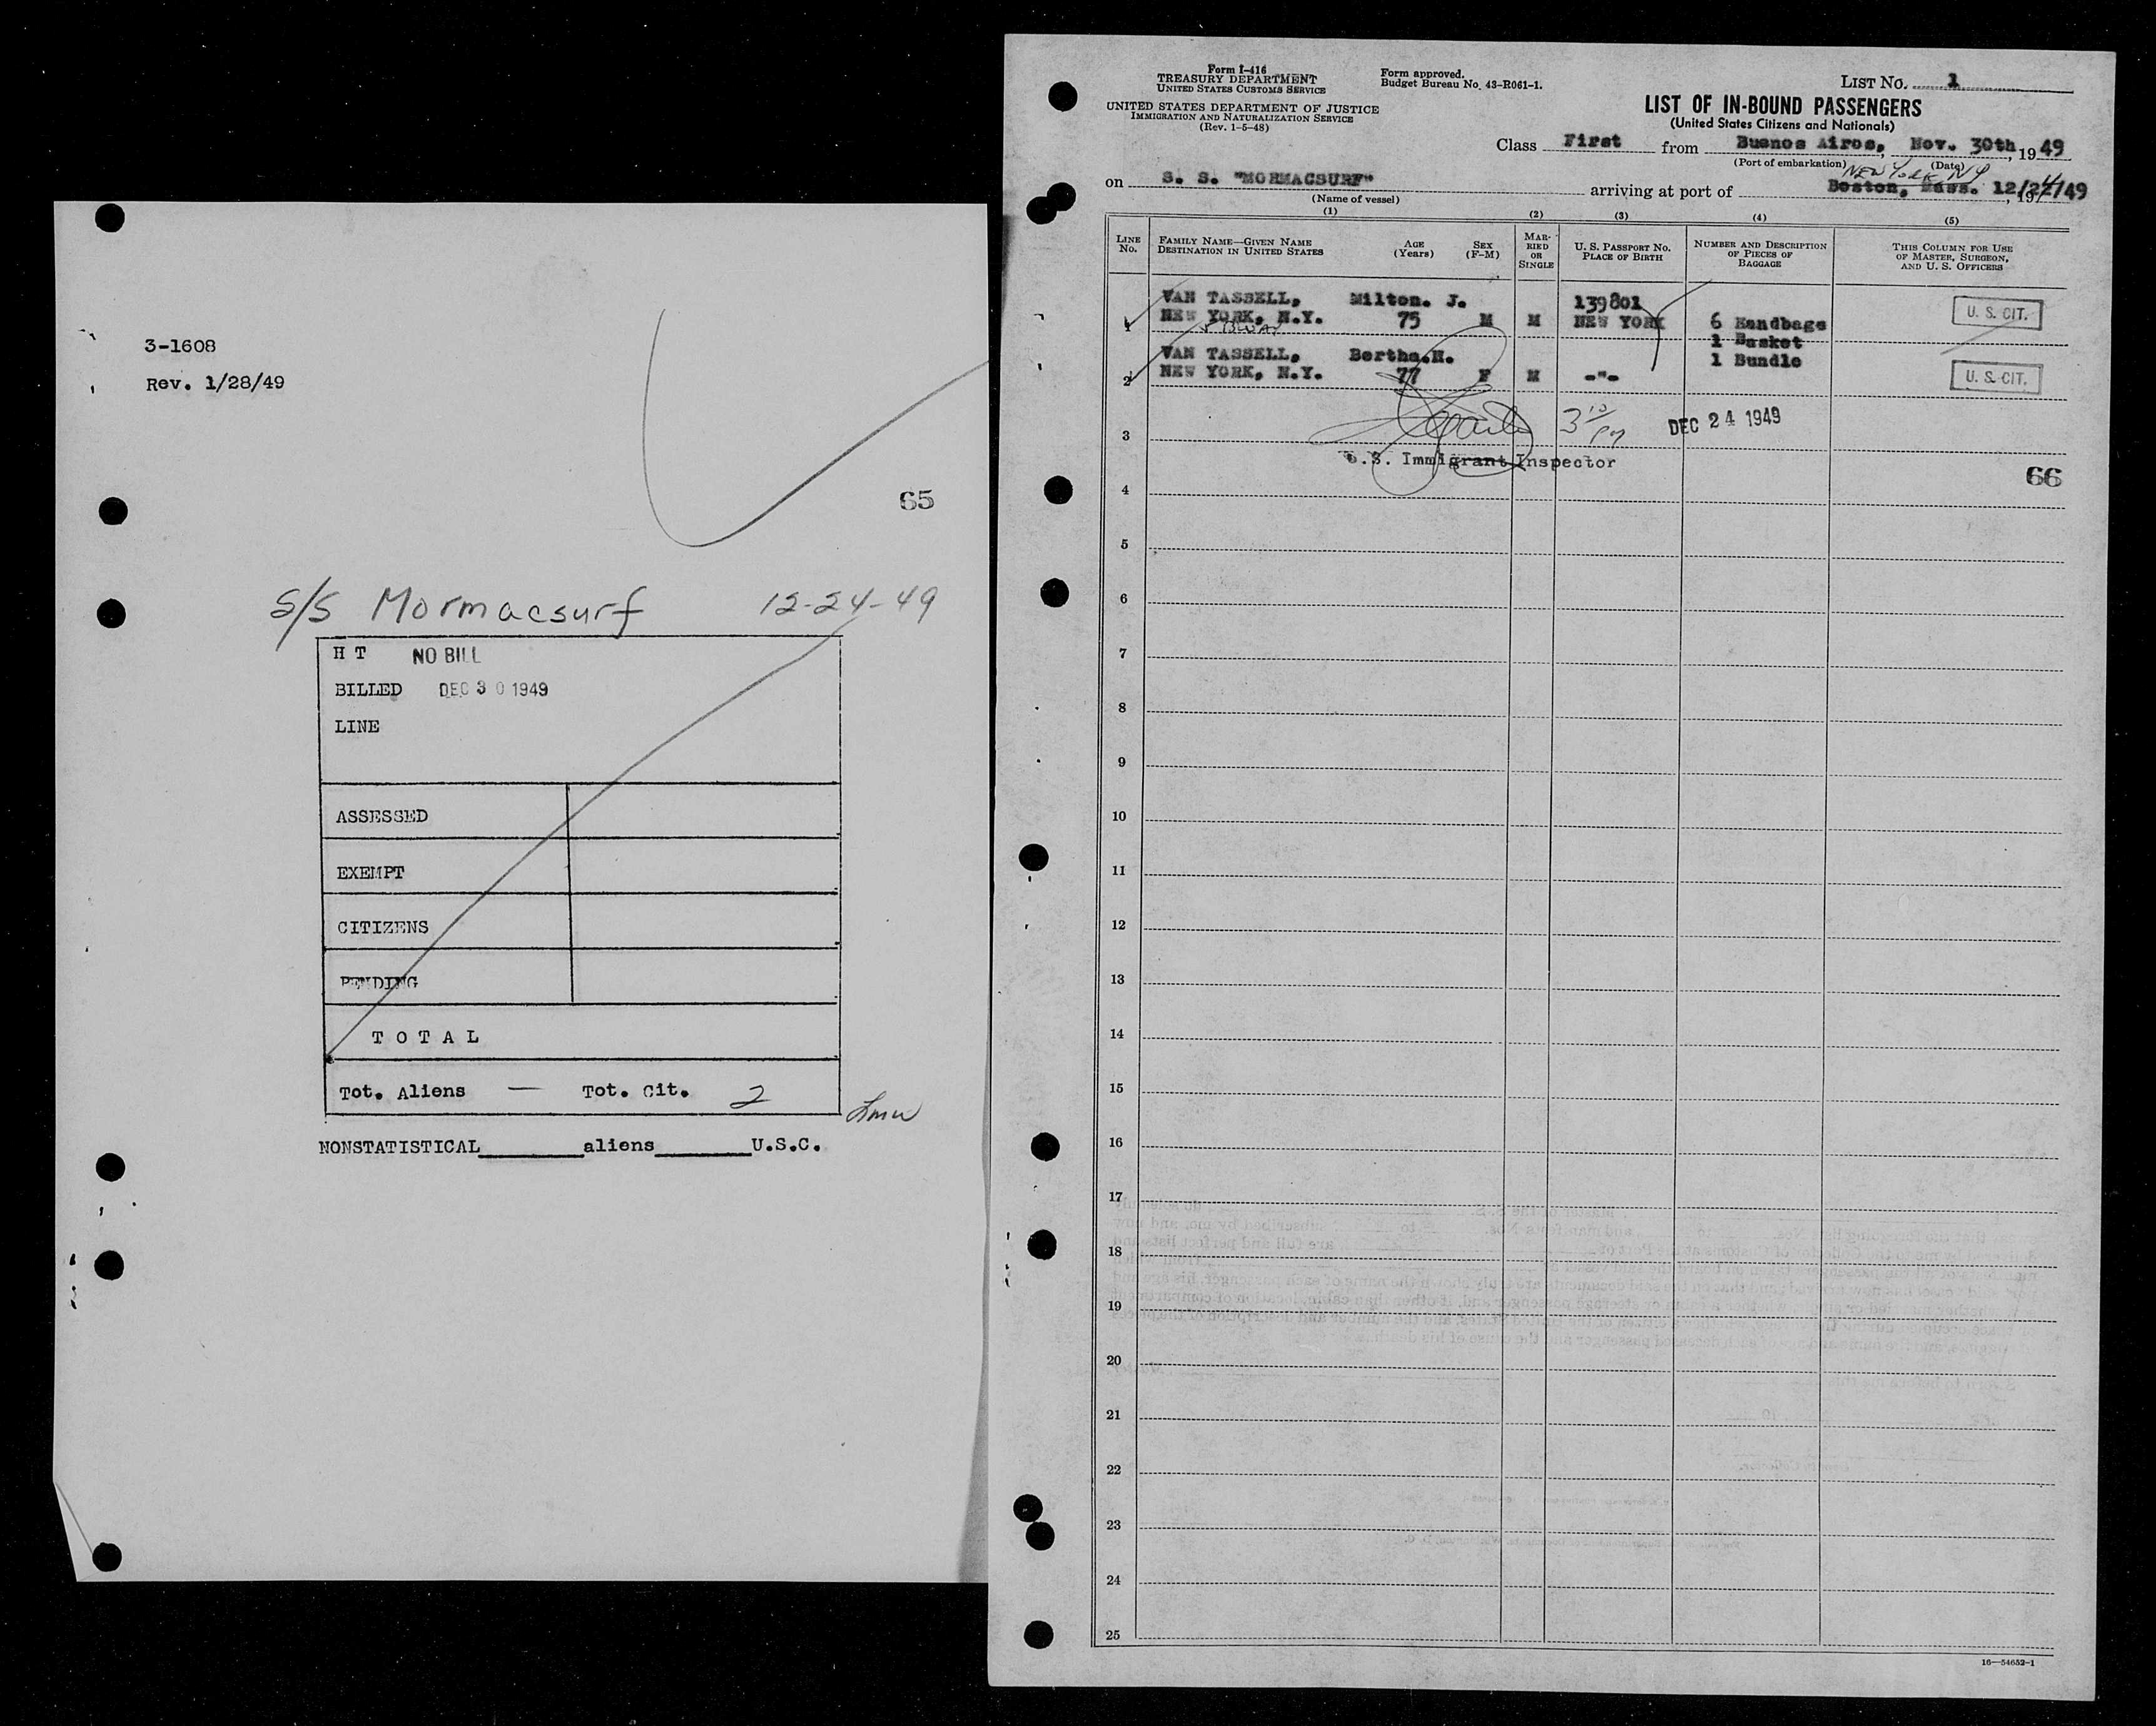 3-1608
Rev. 1/28/49
65
S/S Mormacsurf 12-24-49
H T NO BILL
BILLED DEC 30 1949
LINE
ASSESSED
EXEMPT
CITIZENS
PENDING
T O T A L
Tot. Aliens — Tot. Cit. 2
NONSTATISTICAL________aliens________U.S.C.
Form I-416
TREASURY DEPARTMENT
UNITED STATES CUSTOMS SERVICE
UNITED STATES DEPARTMENT OF JUSTICE
IMMIGRATION AND NATURALIZATION SERVICE
(Rev. 1-5-48)
Form approved.
Budget Bureau No. 43-R061-1.
LIST No. 1
LIST OF IN-BOUND PASSENGERS
(United States Citizens and Nationals)
Class First from Buenos Aires, Nov. 30th, 1949
(Port of embarkation) (Date)
NEW YORK NY
on S. S. "MORMACSURF" arriving at port of Boston, Mass. 12/24/49, 19
(Name of vessel)
(1) (2) (3) (4) (5)
LINE No.
FAMILY NAME—GIVEN NAME
DESTINATION IN UNITED STATES
AGE
(Years)
SEX
(F-M)
MARRIED OR SINGLE
U. S. PASSPORT No.
PLACE OF BIRTH
NUMBER AND DESCRIPTION OF PIECES OF BAGGAGE
THIS COLUMN FOR USE OF MASTER, SURGEON, AND U. S. OFFICERS
VAN TASSELL, Milton. J. 139801
1 NEW YORK, N.Y. 75 M M NEW YORK 6 Handbags U. S. CIT.
1 Basket
VAN TASSELL, Bertha.H. 1 Bundle
2 NEW YORK, N.Y. 77 F M -"- U. S. CIT.
3 10/PM DEC 24 1949
3
U.S. Immigrant Inspector
66
4
5
6
7
8
9
10
11
12
13
14
15
16
17
18
19
20
21
22
23
24
25
16—54652-1